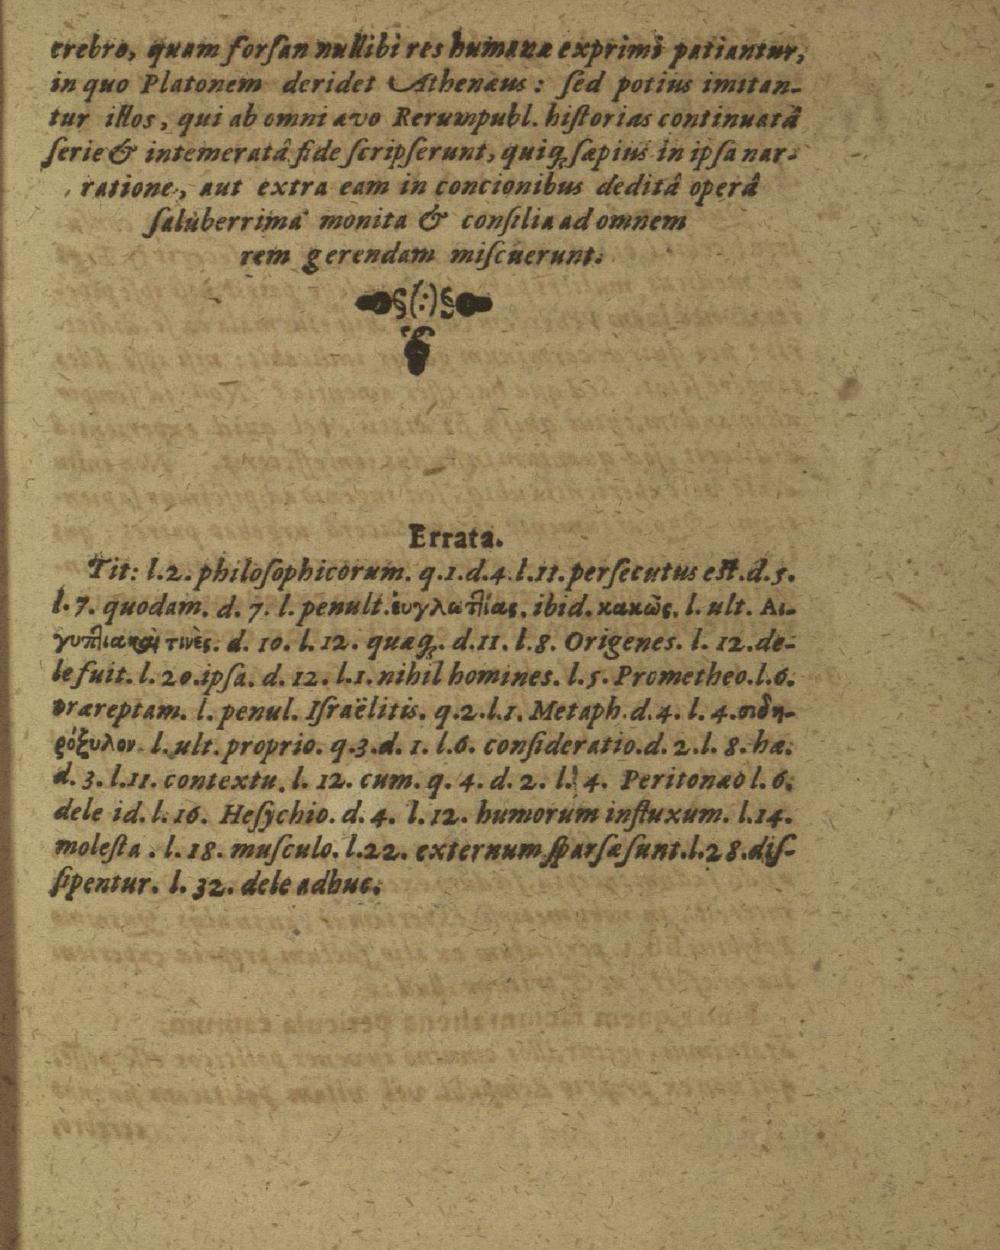 erebro, quam forſan nullibi res humanæ exprimi patiantur,
in quo Platonem deridet Athenæus: ſed potius imitan-
tur illos, qui ab omni ævo Rerumpubl. hiſtorias continuatâ
ſerie & intemeratâ fide ſcripſerunt, quiq; ſæpius in ipſa nar-
ratione, aut extra eam in concionibus deditâ operâ
ſaluberrima monita & conſilia ad omnem
rem gerendam miſcuerunt.
§(:)§
Errata.
Tit: l.2. philoſophicorum. q.1.d.4.l.11.perſecutus eſt.d.5.
l.7. quodam. d. 7. l. penult. ἐυγλωττίας. ibid. κακῶς. l. ult. Αι-
γυπτιακοὶ τινὲς. d. 10. l. 12. quæq;. d.11. l.8. Origenes. l. 12.de-
le fuit. l. 20.ipſa. d. 12. l.1. nihil homines. l.5. Prometheo.l.6.
præreptam. l. penul. Iſraëlitis. q.2.l.1. Metaph.d.4. l. 4.σιδη-
ρόξυλον. l. ult. proprio. q.3.d. 1. l.6. conſideratio.d. 2.l. 8. hæ.
d. 3. l.11. contextu. l. 12. cum. q. 4. d. 2. l. 4. Peritonæo l. 6.
dele id. l. 16. Heſychio. d. 4. l. 12. humorum influxum. l.14.
moleſta. l. 18. muſculo. l.22. externum ſparſæ ſunt.l.28.diſ-
ſipentur. l. 32. dele adhuc.